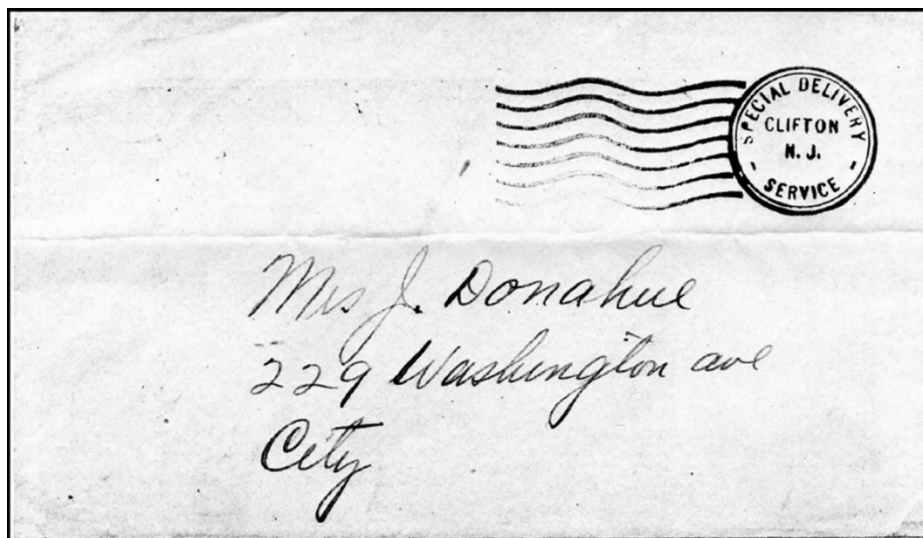 SPECIAL DELIVERY
CLIFTON
N. J.
- SERVICE -
Mrs J. Donahue
229 Washington ave
City